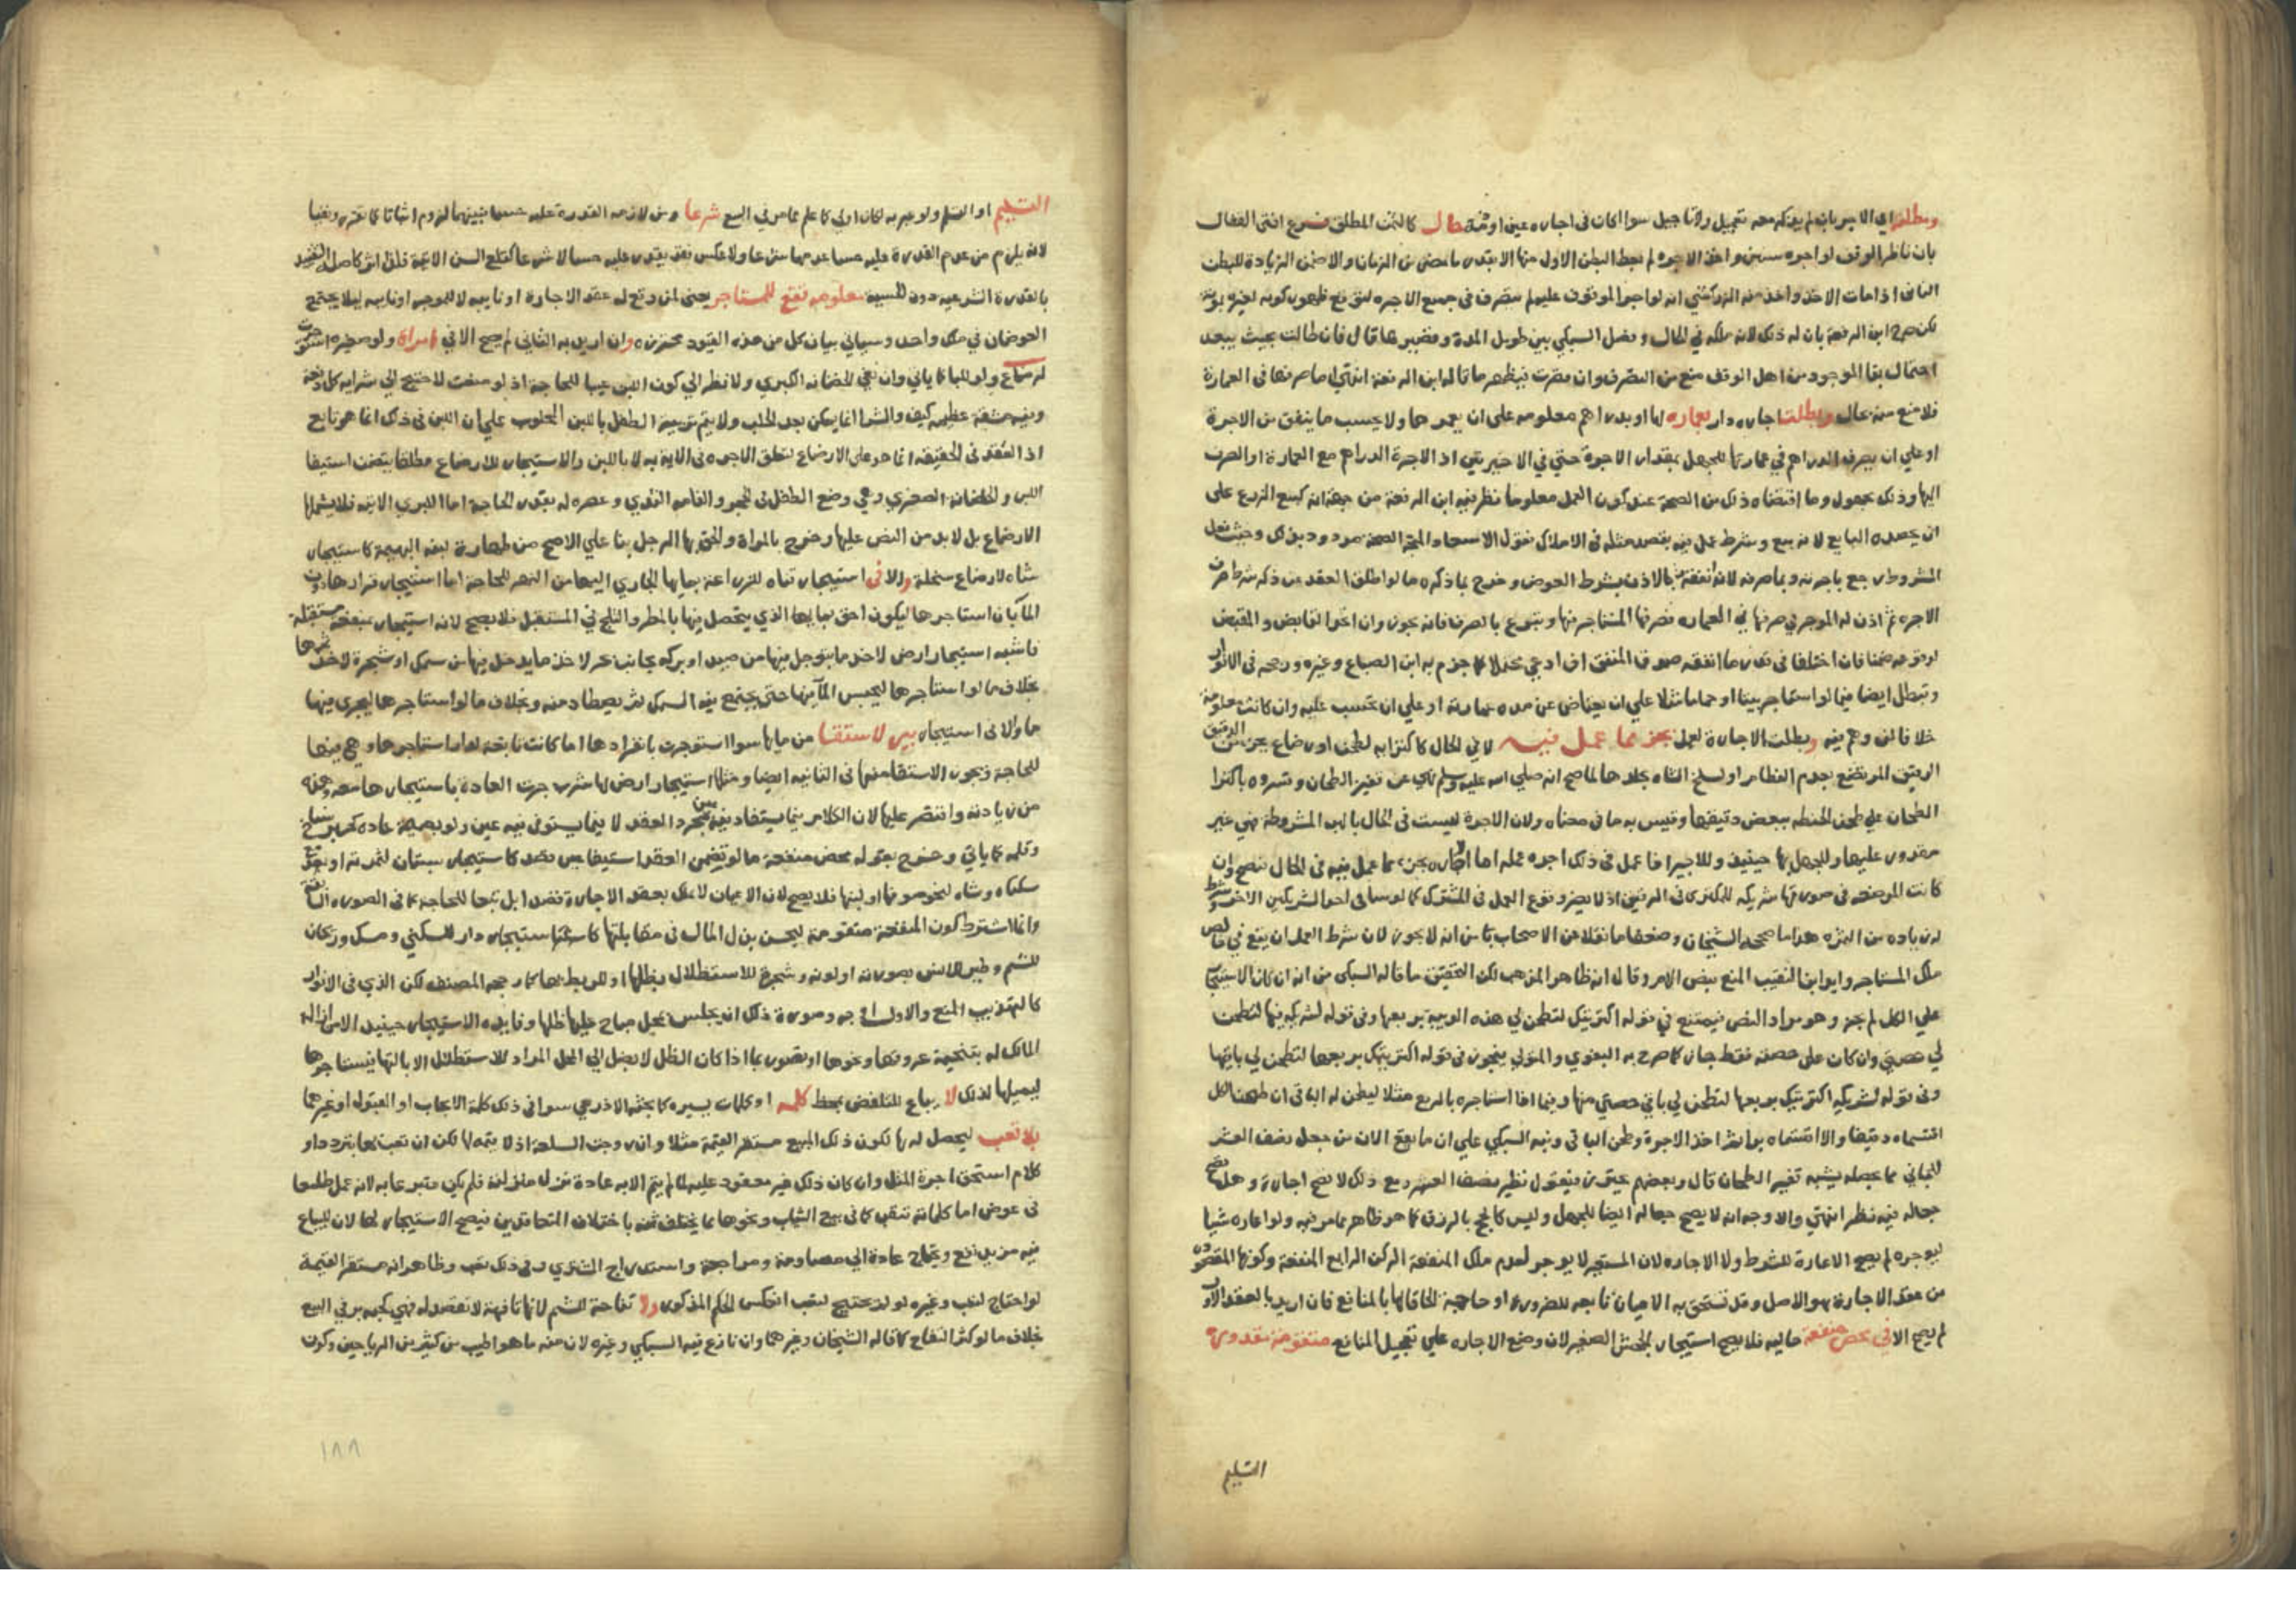 ومطلقه اي الاجير بان لم يذكر معه تعجيل ولا تاجيل سوا اكان في اجاره عين او ذمة حال كالثمن المطلق فرع افتى القفال
بان ناظر الوقف لو اجره سنين واخذ الاجره لم يعط البطن الاول منها الا بقدر ما مضى من الزمان والا ضمن الزيادة للبطن
الثاني اذا مات الاخذ واخذ منه الزركشي انه لو اجر الموقوف عليه لم يتصرف في جميع الاجره لتوقع ظهور كونه لغيره بموته
لكن صرح ابن الرفعة بان له ذلك لانه ملكه في الحال وفصل السبكي بين طويل المدة وقصيرها قال فان طالت بحيث يبعد
احتمال بقا الموجود من اهل الوقف منع من التصرف وان قصرت فيظهر ما قاله ابن الرفعة انتهى اما صرفها في العمارة
فلا منع منه بحال وبطلت اجاره دار بعماره لها او بدراهم معلومه على ان يعمرها ولا يحسب ما ينفق من الاجرة
او على ان يصرف الدراهم في عمارتها للجهل بمقدار الاجرة حتى في الاخيرتين اذ الاجرة الدراهم مع العمارة او الصرف
اليها وذلك مجهول وما اقتضاه ذلك من الصحة عند كون العمل معلوما نظر فيه ابن الرفعة من جهة انه كبيع الزرع على
ان يحصده البايع لانه بيع وشرط عمل فيه يقصد مثله في الاملاك فقول الاسعاد المتجه الصحة مردود بذلك وحيث فعل
المشروط رجع باجرته وبما صرفه لانه انفقه بالاذن بشرط العوض وخرج بما ذكره ما لو اطلق العقد عن ذكر شرط صرف
الاجره ثم اذن له الموجر في صرفها في العماره فصرفها المستاجر منها وتبرع بالصرف فانه يجوز وان اتحد القابض والمقبض
لوقوعه ضمنا فان اختلفا في قدر ما انفقه صدق المنفق ان ادعى محتملا كما جزم به ابن الصباغ وغيره ورجحه في الانوار
وتبطل ايضا فيما لو استاجر بيتا او حماما مثلا على ان يعتاض عن مدة عمارته او على ان تحسب عليه وان كانت معلومة
خلافا لمن وهم فيه وبطلت الاجارة لعمل بجزء مما عمل فيه لا في الحال كاكترايه لطحن او رضاع بجزء من الدقيق
الرقيق المرتضع بعدم الفطام او لسلخ الشاه بجلدها لما صح انه صلى الله عليه وسلم نهى عن قفيز الطحان وفسروه باكترا
الطحان على طحن الحنطه ببعض دقيقها وقيس به ما في معناه ولان الاجرة ليست في الحال بالهيئة المشروطة فهي غير
مقدور عليها وللجهل بها حينئذ وللاجير اذا عمل في ذلك اجره عمله اما اكتراه بجزء مما عمل فيه في الحال فيصح وان
كانت المرضعه في صورتها شريكه للمكتري في الرقيق اذ لا يضر وقوع العمل في المشترك كما لو ساقى احد الشريكين الاخر وشرط
له زياده من الثمره هذا ما صححه الشيخان وضعفا ما نقلا عن الاصحاب تارة من انه لا يجوز لان شرط العمل ان يقع في خالص
ملك المستاجر وايد ابن النقيب المنع بنص الام وقال انه ظاهر المذهب لكن التحقيق ما قاله السبكي من انه ان كان الاستيجار
على الكل لم يجز وهو مراد النص فيمتنع في قوله اكتريتك لتطحن لي هذه الويبة بربعها وفي قوله لشريكه فيها لتطحن
لي حصتي وان كان على حصته فقط جاز كما صرح به البغوي والمتولي فيجوز في قوله اكتريتك بربعها لتطحن لي باقيها
وفي قوله لشريكه اكتريتك بربعها لتطحن لي باقي حصتي منها وفيما اذا استاجره بالربع مثلا ليطحن له الباقي ان طحنا الكل
اقتسماه دقيقا والا اقتسماه برا ثم اخذ الاجرة وطحن الباقي ونبه السبكي على ان ما يقع الان من جعل نصف العشر
للجاني مما يحصله يشبه قفيز الطحان قال وبعضهم يحترز فيقول نظير نصف العشر ومع ذلك لا تصح اجارة وهل تصح
جعاله فيه نظر انتهى والاوجه انه لا يصح جعالة ايضا للجهل وليس كالحج بالرزق كما هو ظاهر مما مر فيه ولو اعاره شيا
ليوجره لم يصح الاعارة للشرط ولا الاجاره لان المستعير لا يوجر لعدم ملك المنفعة الركن الرابع المنفعة وكونها المقصوده
من عقد الاجارة هو الاصل وقد تستحق به الاعيان تابعه لضروره او حاجة الحاقا لها بالمنافع فان اريد بالعقد الاول
لم يصح الا في محض منفعة حاليه فلا يصح استيجار الجحش الصغير لان وضع الاجاره على تعجيل المنافع متقومة مقدورة
التسليم
التسليم او التسلم ولو عبر به لكان اولى كما علم مما مر في البيع شرعا ومن لازمه القدرة عليه حسا فبينهما لزوم اثباتا كما تقرر ونفيا
لانه يلزم من عدم القدرة عليه حسا عدمها شرعا ولا عكس فقد يقدر عليه حسا لا شرعا كقلع السن الاتية فلذا اثر كاصله التقييد
بالقدرة الشرعيه دون الحسية معلومه تقع للمستاجر يعني لمن وقع له عقد الاجارة او نايبه لا للموجر او نايبه ليلا يجتمع
العوضان في ملك واحد وسياتي بيان كل من هذه القيود بمحترزه وان اريد به الثاني لم يصح الا في امراة ولو صغيره استوجرت
لرضاع ولو للبا كما ياتي وان نفي الحضانه الكبرى ولا نظر الى كون اللبن عينا للحاجة اذ لو منعت لاحتيج الى شرايه كل دفعة
وفيه مشقه عظيمه كيف والشرا انما يمكن بعد الحلب ولا يتم تربية الطفل باللبن المحلوب على ان اللبن في ذلك انما هو تابع
اذ العقد في الحقيقه انما هو على الارضاع لتعلق الاجره في الايه به لا باللبن والاستيجار للارضاع مطلقا يتضمن استيفا
اللبن والحضانة الصغرى وهي وضع الطفل في الحجر والقامه الثدي وعصره له بقدر الحاجة اما الكبرى الاتية فلا يشملها
الارضاع بل لا بد من النص عليها وخرج بالمراة والحق بها الرجل بنا على الاصح من طهارة لبنه البهيمة كاستيجار
شاه لارضاع سخلة والا في استيجار قناه للزراعة بمايها الجاري اليها من النهر للحاجة اما استيجار قرارها دون
الما بان استاجرها ليكون احق بمايها الذي يتحصل فيها بالمطر والثلج في المستقبل فلا يصح لانه استيجار لمنفعة مستقبلة
فاشبه استيجار ارض لاخذ ما يتوحل فيها من صيد او بركه بجانب بحر لاخذ ما يدخل فيها من سمك او شجرة لاخذ ثمرها
بخلاف ما لو استاجرها ليحبس الما فيها حتى يجتمع فيه السمك ثم يصطاد منه وبخلاف ما لو استاجرها ليجري فيها
ما والا في استيجار بير لاستقا من مايها سوا استوجرت بانفرادها اما كانت تابعة لدار استاجرها وهي فيها
للحاجة ويجوز الاستقا منها في الثانيه ايضا ومثلها استيجار ارض لها شرب جرت العادة باستيجارها معه وهذه
من زيادته واقتصر عليها لان الكلام فيما يستفاد فيه عين بمجرد العقد لا فيما يستوفى فيه عين ولو بصبغ عاده كحبر ناسخ
وقلمه كما ياتي وخرج بقوله محض منفعة ما لو تضمن العقد استيفا عين قصد كاستيجار بستان لثمرته او بقعة
سكناه وشاه لنحو صوفها او لبنها فلا يصح لان الاعيان لا تملك بعقد الاجارة قصدا بل تبعا للحاجة كما في الصوره السابقة
وانما اشترط كون المنفعة متقومة ليحسن بذل المال في مقابلتها كاستيجار دار للسكنى ومسك وريحان
للشم وطير للانس بصوته او لونه وشجرة للاستظلال بظلها او للربط بها كما رجحه المصنف لكن الذي في الانوار
كالتهذيب المنع والاول اوجه وصورة ذلك ان يجلس بمحل مباح عليها ظلها وفايدة الاستيجار حينئذ الامن ازالة
المالك له بتنحية عروقها ونحوها او تصور بما اذا كان الظل لا يصل الى المحل المراد للاستظلال الا بالتها فيستاجرها
ليميلها لذلك لا بياع للتلفظ بمحض كلمه او كلمات يسيره كما بحثه الاذرعي سوا في ذلك كلمة الايجاب او القبول او غيرهما
بلا تعب ليحصل له بها لكون ذلك المبيع مستقر القيمة مثلا وان روجت السلعة اذ لا قيمة لها لكن ان تعب بها بتردد او
كلام استحق اجرة المثل وان كان ذلك غير معقود عليه لما لم يتم الا به عادة نزل منزلته فلم يكن متبرعا به لانه عمل طامعا
في عوض اما كلماته تتعب كما في بيع الثياب ونحوها مما يختلف ثمنه باختلاف المتعاقدين فيصح الاستيجار لها لان للبياع
فيه مزيد نفع ويحتاج عادة الى مصاومة ومراجعة واستدراج المشتري وفي ذلك تعب وظاهر انه مستقر القيمة
لو احتاج لتعب وغيره لو لم يحتج لتعب انعكس الحكم المذكور ولا تفاحة للشم لانها تافهة لا تقصد له فهي كحبه بر في البيع
بخلاف ما لو كثر التفاح كما قاله الشيخان وغيرهما وان نازع فيه السبكي وغيره لان منه ما هو اطيب من كثير من الرياحين وكون
١٨٨